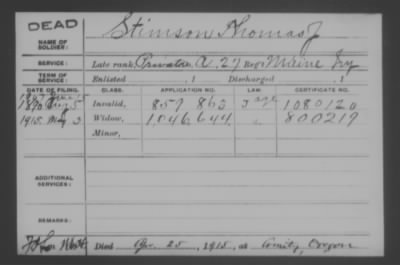 DEAD
NAME OF SOLDIER: Stimson Thomas J
SERVICE: Late rank, Private A. 27 Reg't Maine Inf
TERM OF SERVICE: Enlisted , 1 Discharged , 1
DATE OF FILING. CLASS. APPLICATION NO. LAW. CERTIFICATE NO.
1890 5 Invalid, 857 863 1080120
1915 May 3 Widow, 1,046,644 800219
Minor,
ADDITIONAL SERVICES:
REMARKS:
Died Apr. 25, 1915, at Amity, Oregon